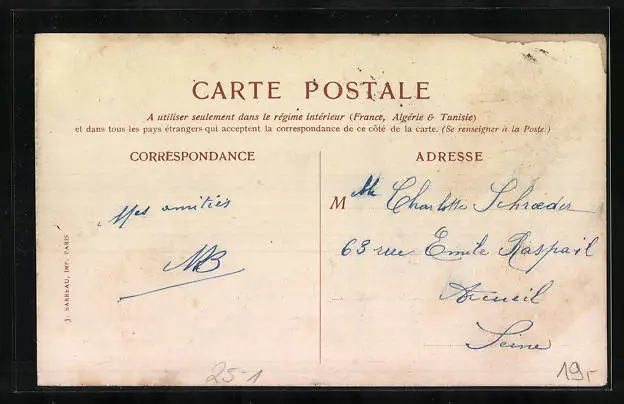 CARTE POSTALE
A utiliser seulement dans le régime intérieur (France, Algérie & Tunisie)
et dans tous les pays étrangers qui acceptent la correspondance de ce côté de la carte. (Se renseigner à la Poste.)
CORRESPONDANCE
Mes amitiés
MB
J. BARREAU, IMP. PARIS
ADRESSE
M lle Charlotte Schrœder
63 rue Emile Raspail
Arcueil
Seine
25-1
19,-